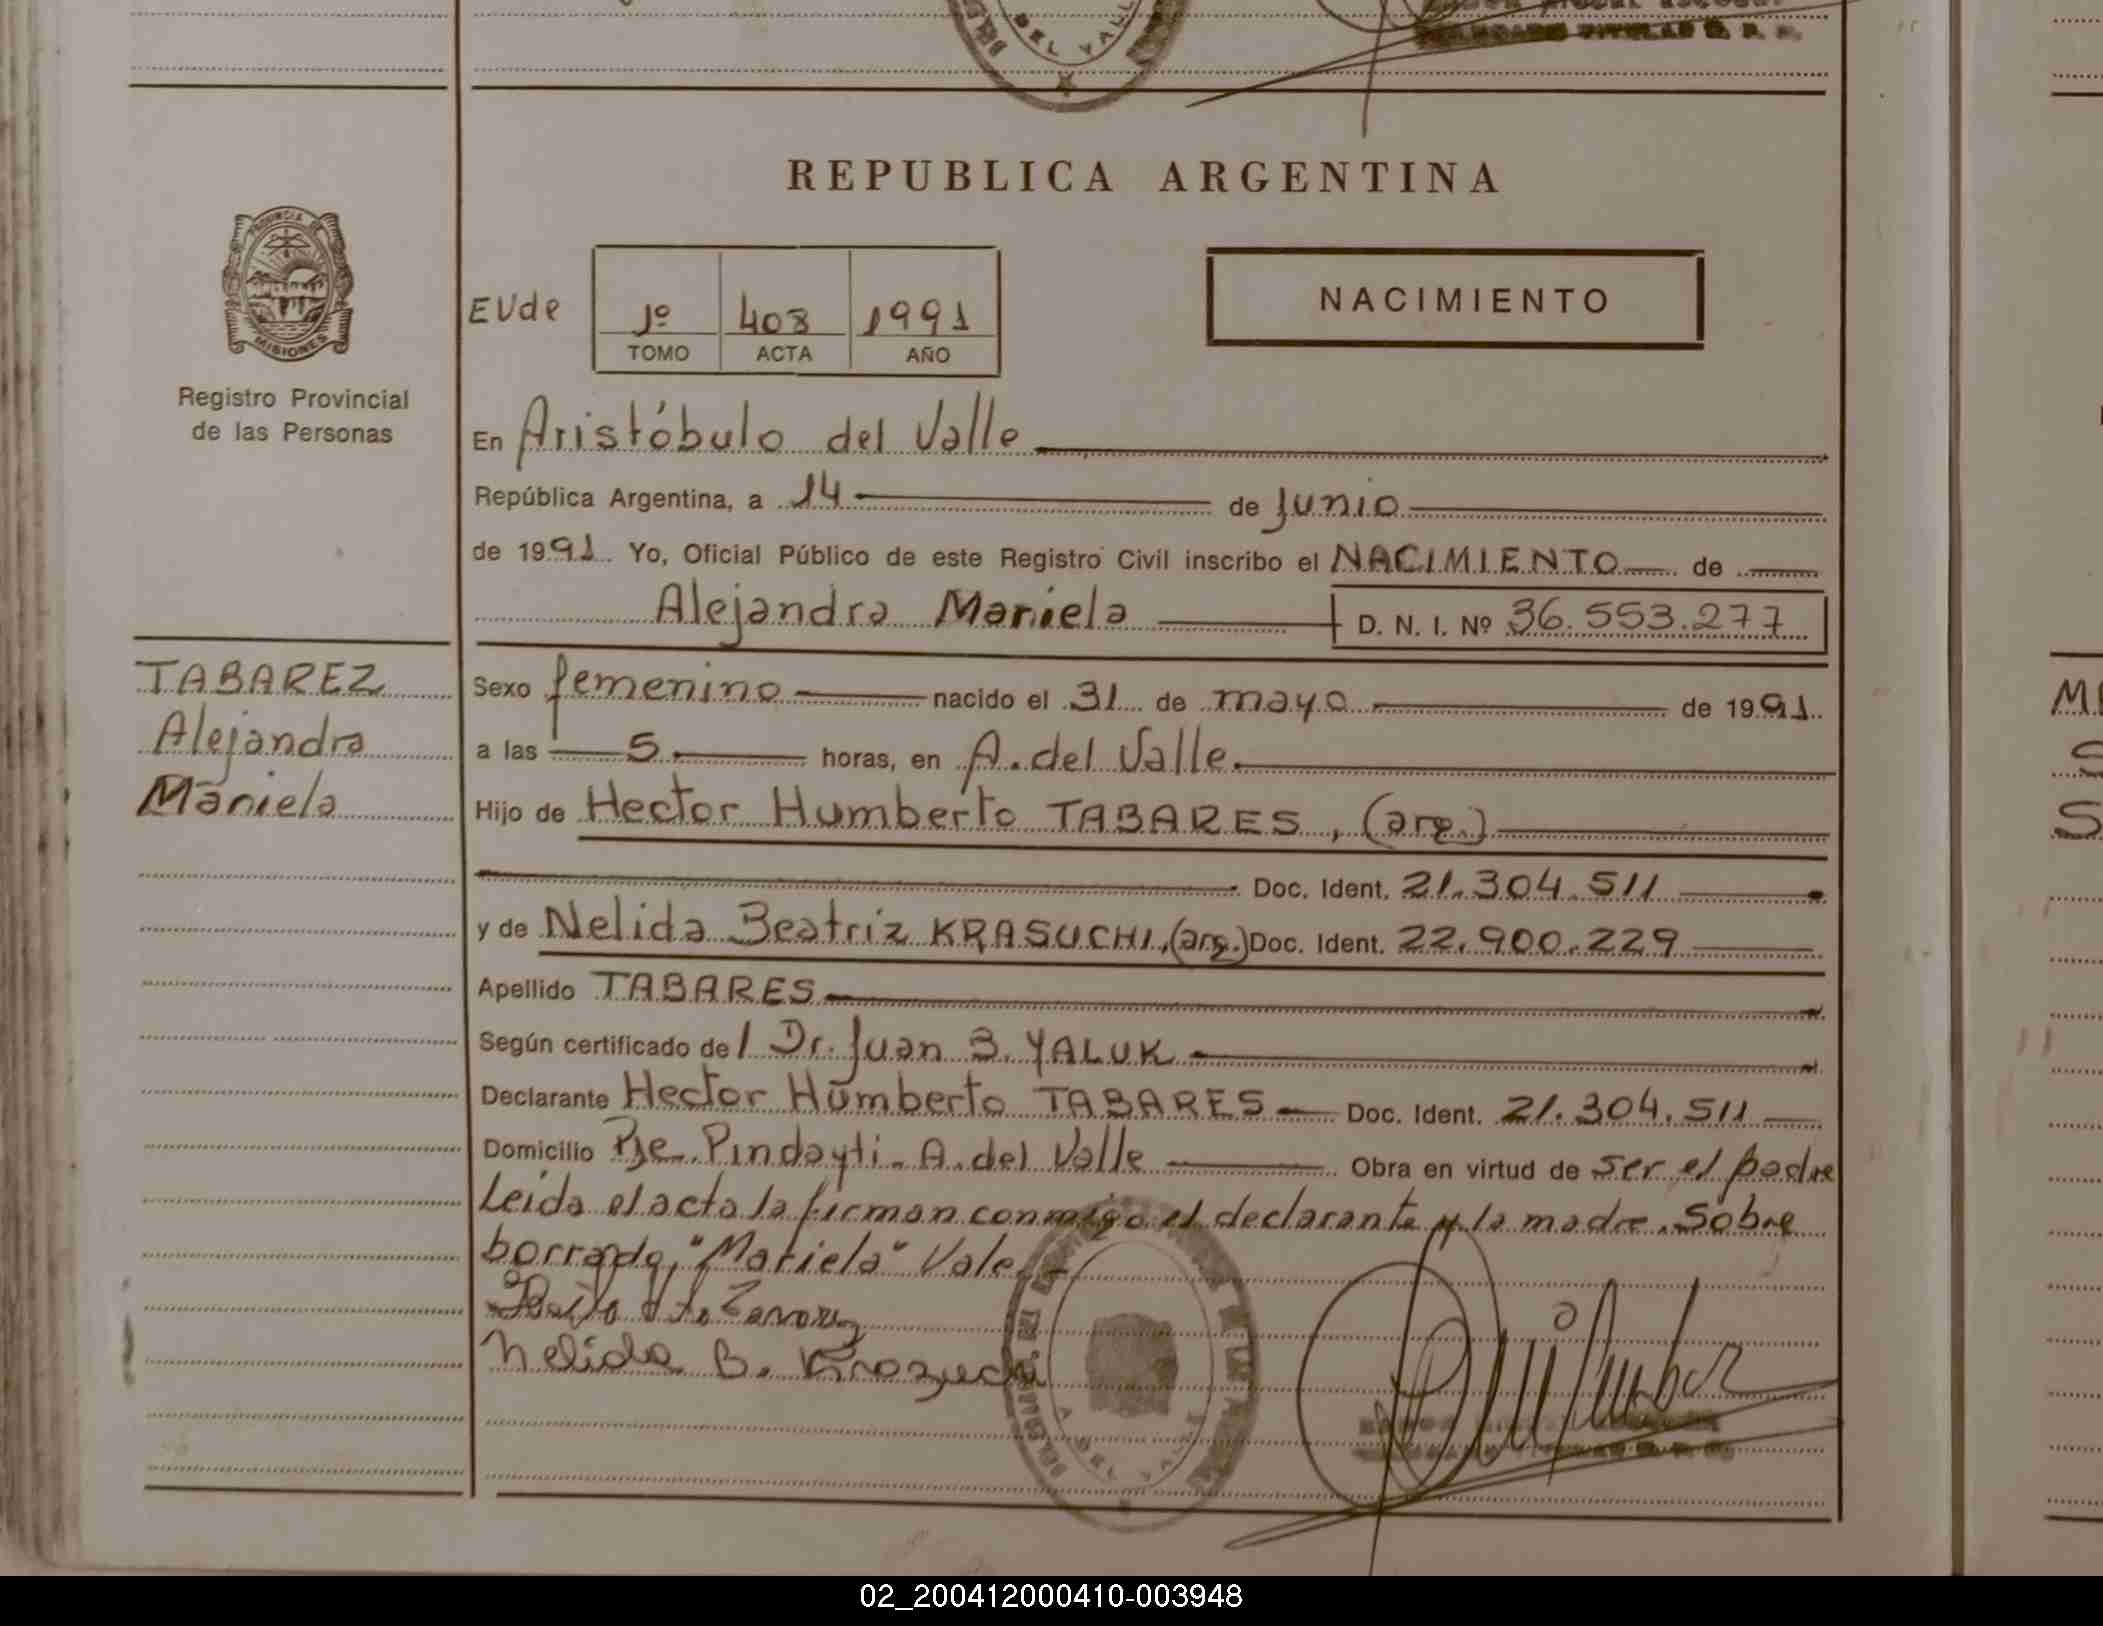 REPUBLICA ARGENTINA
PROVINCIA DE MISIONES
Registro Provincial
de las Personas
EVde
1º 408 1991
TOMO ACTA AÑO
NACIMIENTO
En Aristóbulo del Valle
República Argentina, a 14 de Junio
de 1991 Yo, Oficial Público de este Registro Civil inscribo el NACIMIENTO de
Alejandra Mariela D. N. I. Nº 36.553.277
TABAREZ
Alejandra
Mariela
Sexo femenino nacido el 31 de mayo de 1991
a las 5 horas, en A. del Valle.
Hijo de Hector Humberto TABARES, (arg.)
Doc. Ident. 21.304.511
y de Nelida Beatriz KRASUCHI, (arg.) Doc. Ident. 22.900.229
Apellido TABARES
Según certificado del Dr. Juan B. YALUK
Declarante Hector Humberto TABARES Doc. Ident. 21.304.511
Domicilio Pje. Pindayti. A. del Valle Obra en virtud de ser el padre
Leída el acta la firman conmigo el declarante y la madre. Sobre
borrado, "Mariela" Vale.
Nelida B.
DEL VALLE
02_200412000410-003948